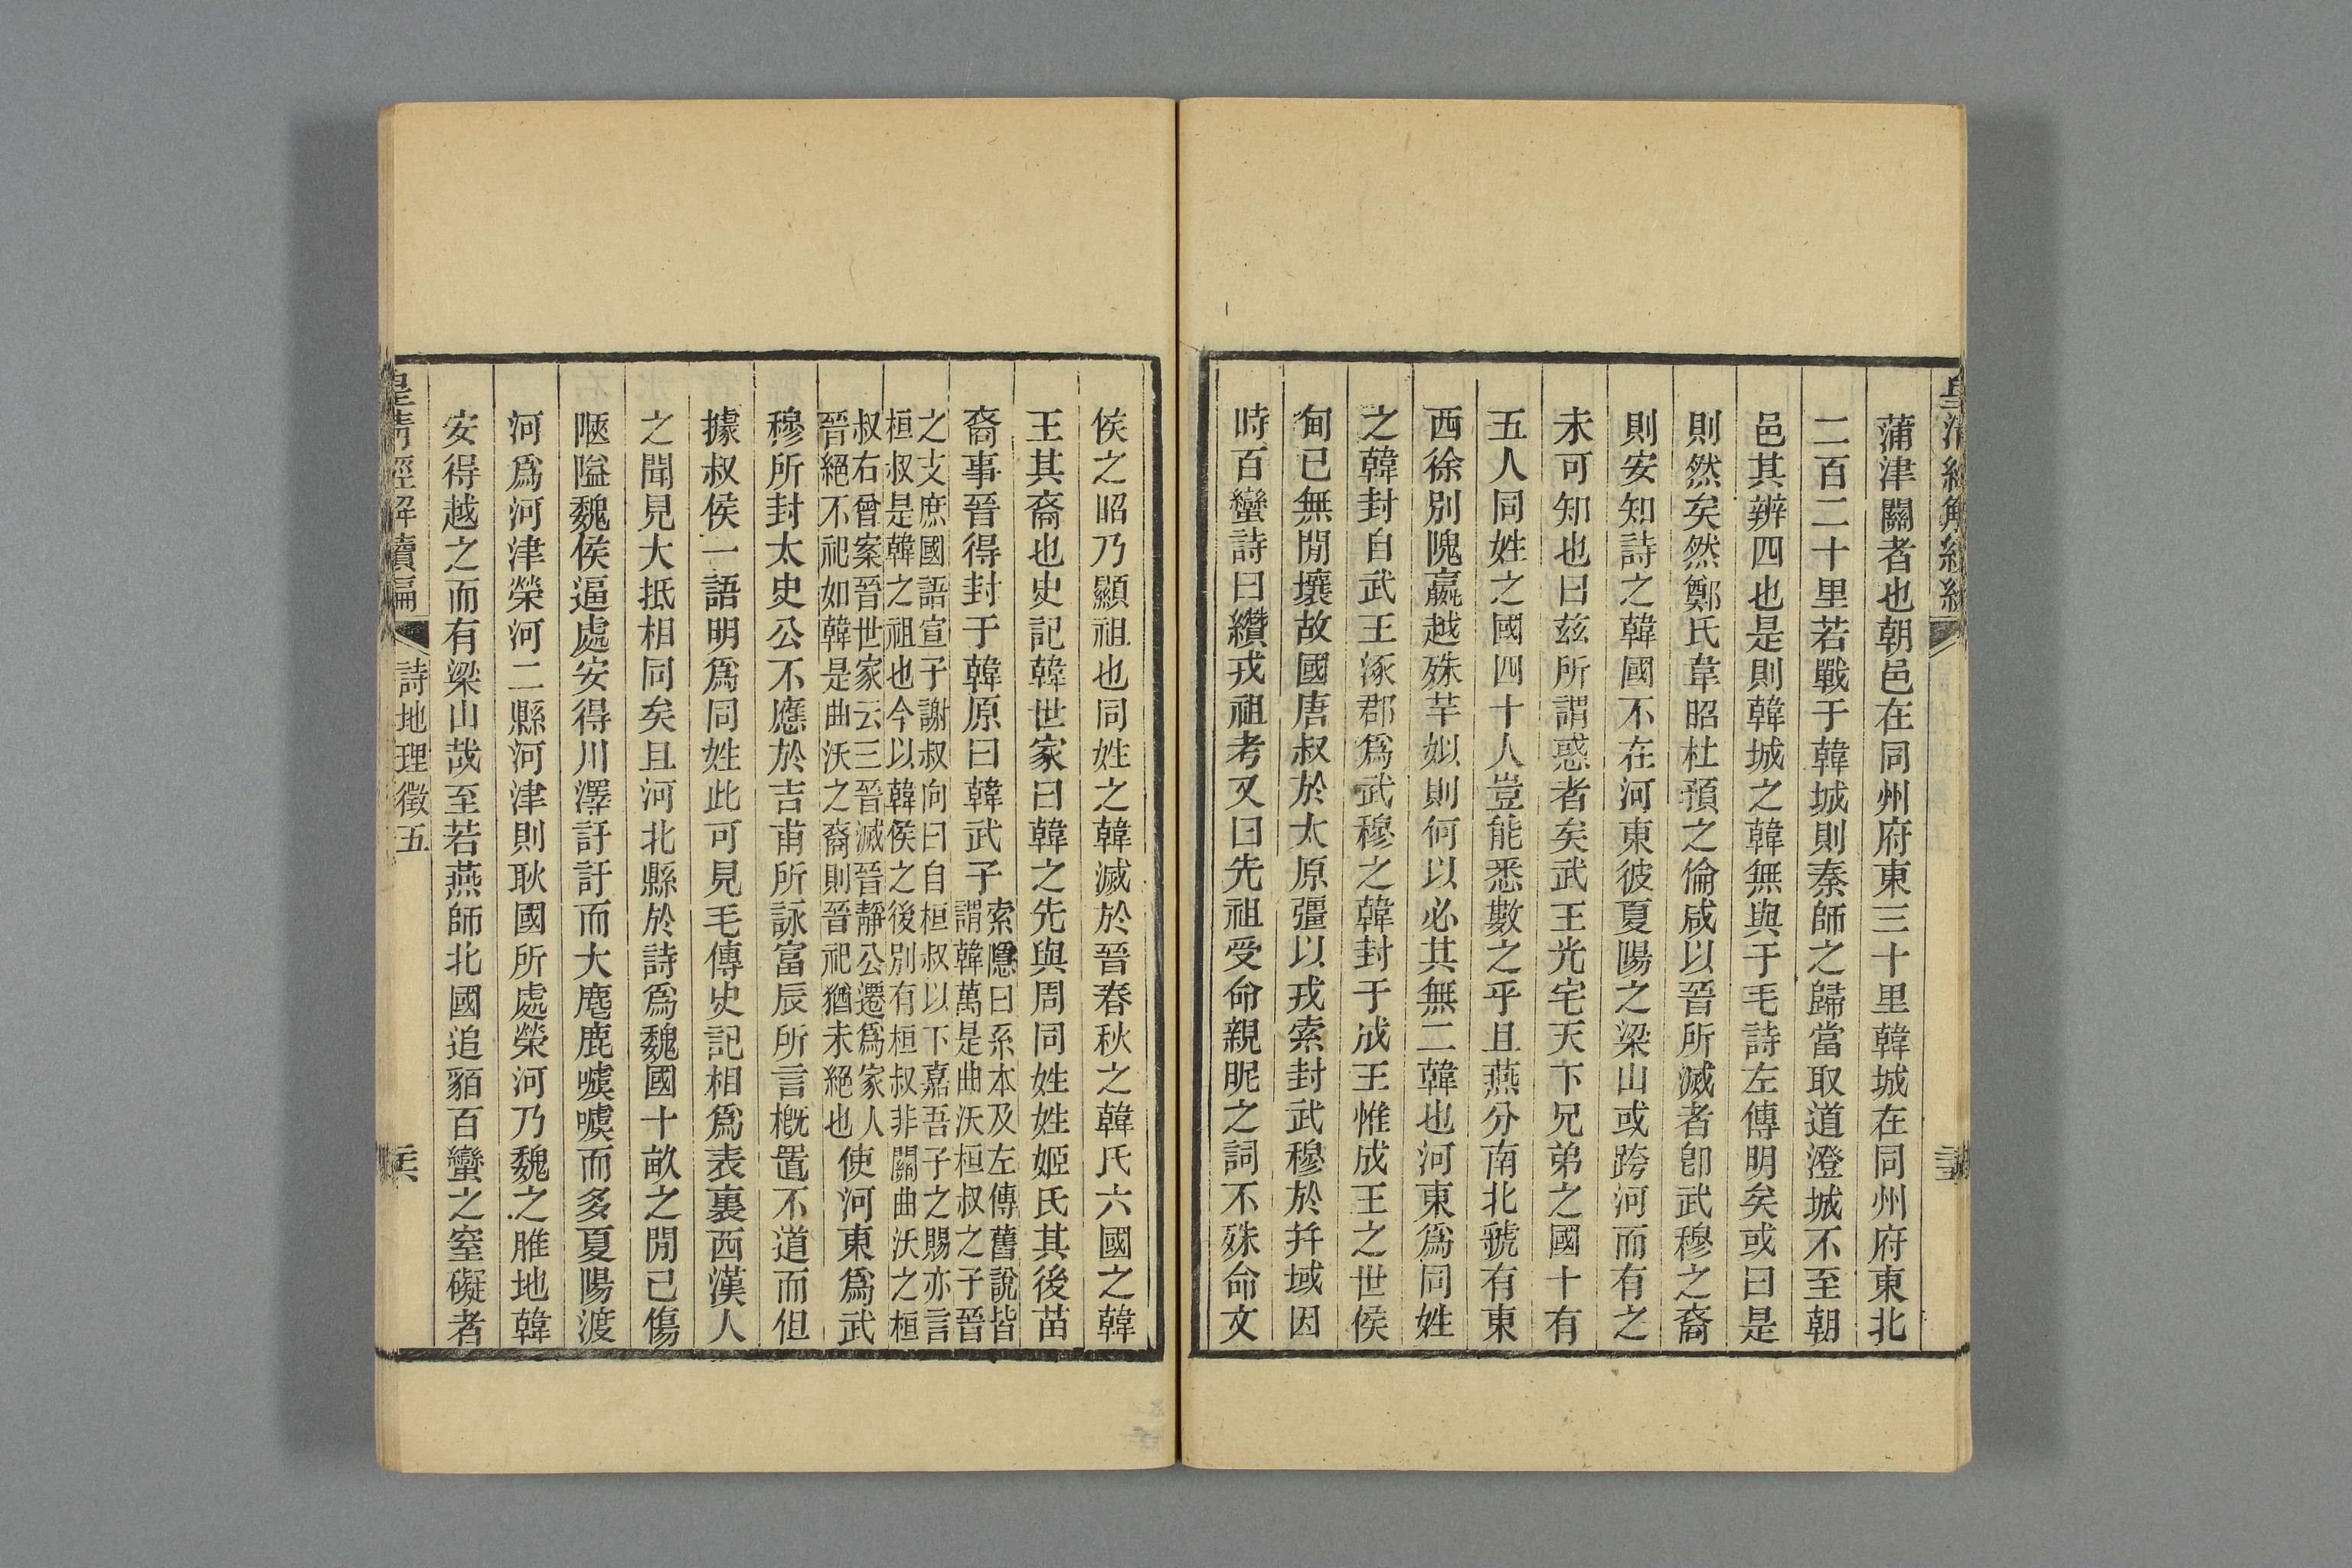 蒲津關者也朝邑在同州府東三十里韓城在同州府東北
二百二十里若戰于韓城則秦師之歸當取道澄城不至朝
邑其辨四也是則韓城之韓無與于毛詩左傳明矣或曰是
則然矣然鄭氏韋昭杜預之倫咸以晉所滅者卽武穆之裔
則安知詩之韓國不在河東彼夏陽之梁山或跨河而有之
未可知也曰兹所謂惑者矣武王光宅天下兄弟之國十有
五人同姓之國四十人豈能悉數之乎且燕分南北虢有東
西徐別隗嬴越殊芊姒則何以必其無二韓也河東爲同姓
之韓封自武王涿郡爲武穆之韓封于成王惟成王之世侯
甸已無閒壤故國唐叔於太原彊以戎索封武穆於幷域因
時百蠻詩曰纘戎祖考又曰先祖受命親昵之詞不殊命文
侯之昭乃顯祖也同姓之韓滅於晉春秋之韓氏六國之韓
王其裔也史記韓世家曰韓之先與周同姓姓姬氏其後苗
裔事晉得封于韓原曰韓武子
索隱曰系本及左傳舊說皆
謂韓萬是曲沃桓叔之子晉
之支庶國語宣子謝叔向曰自桓叔以下嘉吾子之賜亦言
桓叔是韓之祖也今以韓侯之後別有桓叔非關曲沃之桓
叔右曾案晉世家云三晉滅晉靜公遷爲家人
晉絕不祀如韓是曲沃之裔則晉祀猶未絕也
使河東爲武
穆所封太史公不應於吉甫所詠富辰所言槪置不道而但
據叔侯一語明爲同姓此可見毛傳史記相爲表裏西漢人
之聞見大抵相同矣且河北縣於詩爲魏國十畝之閒已傷
陿隘魏侯逼處安得川澤訏訏而大麀鹿噳噳而多夏陽渡
河爲河津榮河二縣河津則耿國所處榮河乃魏之脽地韓
安得越之而有梁山哉至若燕師北國追貊百蠻之窒礙者
皇清經解續編
詩地理徵五